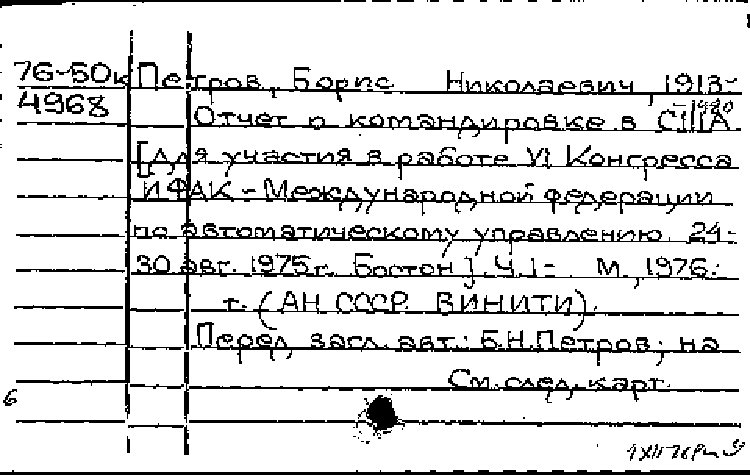 76-50к Петров, Борис Николаевич, 1913-
4968 -1980
Отчет о командировке в США
[Для участия в работе VI Конгресса
ИФАК - Международной федерации
по автоматическому управлению. 24-
30 авг. 1975г. Бостон]. Ч. 1- М., 1976.
т. (АН СССР. ВИНИТИ).
Перед загл. авт.: Б.Н.Петров; на
См. след. карт.
6